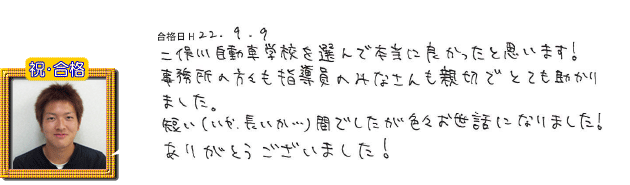 合格日 H 22. 9. 9
祝・合格
二俣川自動車学校を選んで本当に良かったと思います!
事務所の方々も指導員のみなさんも親切でとても助かり
ました。
短い(いや、長いか…)間でしたが色々お世話になりました!
ありがとうございました!